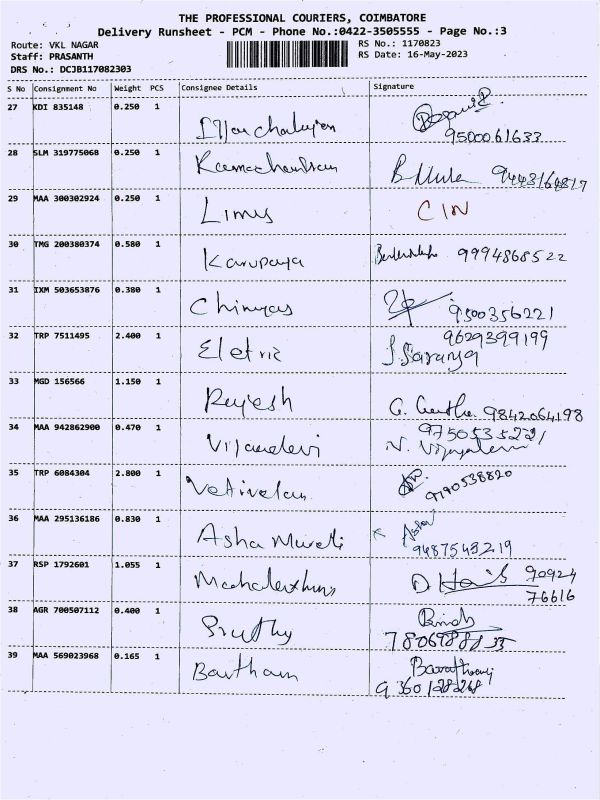 THE PROFESSIONAL COURIERS, COIMBATORE
Delivery Runsheet - PCM - Phone No.:0422-3505555 - Page No.:3
Route: VKL NAGAR RS No.: 1170823
Staff: PRASANTH RS Date: 16-May-2023
DRS No.: DCJB117082303
S No Consignment No Weight PCS Consignee Details Signature
27 KDI 835148 0.250 1
9500061633
28 SLM 319775068 0.250 1 Ramachandran
9443164817
29 MAA 300302924 0.250 1 Limus CIN
30 TMG 200380374 0.580 1 Karupaya 9994868522
31 IXM 503653876 0.380 1 Chinyas 9500356221
32 TRP 7511495 2.400 1 Eletric 9629399199
J. Saranya
33 MGD 156566 1.150 1 Rajesh G. Geetha 9842064198
34 MAA 942862900 0.470 1 Vijayadevi 9750535221
35 TRP 6084304 2.800 1 Vetivelan 9790538820
36 MAA 295136186 0.830 1 Asha Murali Asha
9487543219
37 RSP 1792601 1.055 1 90924
76616
38 AGR 700507112 0.400 1 Sruthy
39 MAA 569023968 0.165 1 Bartham
9360128268